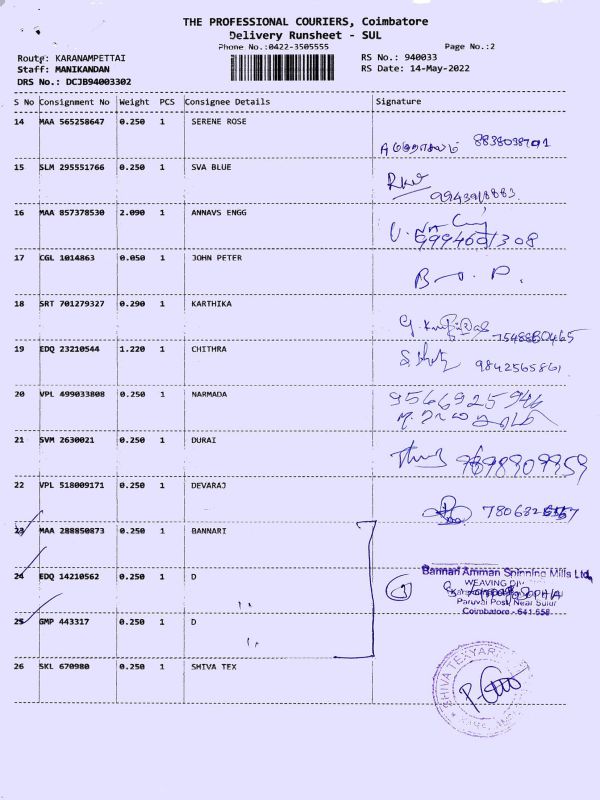 THE PROFESSIONAL COURIERS, Coimbatore
Delivery Runsheet - SUL
Phone No.:0422-3505555
Page No.:2
Route: KARANAMPETTAI
RS No.: 940033
Staff: MANIKANDAN
RS Date: 14-May-2022
DRS No.: DCJB94003302
S No Consignment No Weight PCS Consignee Details Signature
14 MAA 565258647 0.250 1 SERENE ROSE
15 SLM 295551766 0.250 1 SVA BLUE
16 MAA 857378530 2.090 1 ANNAVS ENGG
9994601308
17 CGL 1014863 0.050 1 JOHN PETER
18 SRT 701279327 0.290 1 KARTHIKA
19 EDQ 23210544 1.220 1 CHITHRA
9842565861
20 VPL 499033808 0.250 1 NARMADA
9566925946
21 SVM 2630021 0.250 1 DURAI
22 VPL 518009171 0.250 1 DEVARAJ
23 MAA 288850873 0.250 1 BANNARI
24 EDQ 14210562 0.250 1 D
Bannari Amman Spinning Mills Ltd.,
WEAVING DIV
Paruvai Post, Near Sulur
Coimbatore - 641 658
25 GMP 443317 0.250 1 D
26 SKL 670980 0.250 1 SHIVA TEX
SHIVA TEXYARN